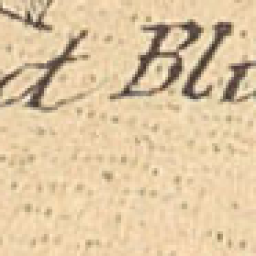 d Blu